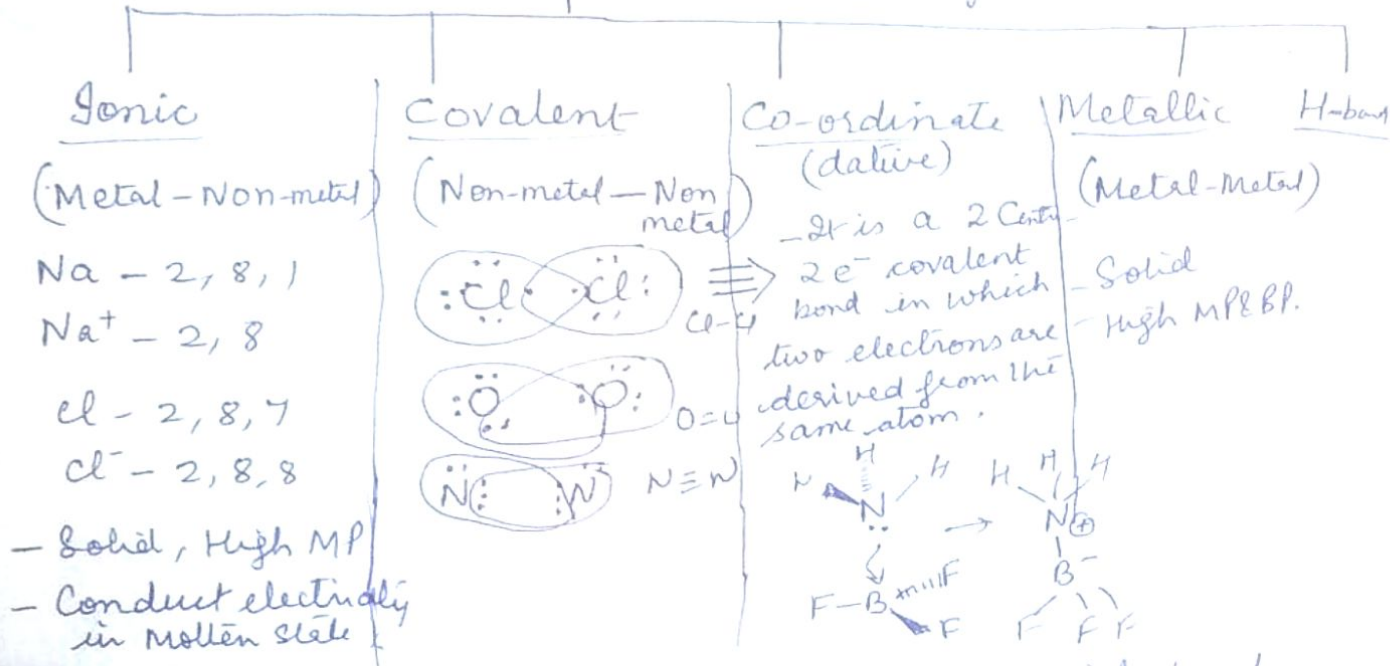 Ionic
(Metal - Non-metal)
Na - 2, 8, 1
Na+ - 2, 8
Cl - 2, 8, 7
Cl- - 2, 8, 8
- Solid, High MP
- Conduct electricity
in Molten State
Covalent
(Non-metal — Non
metal)
:Cl· ·Cl:
Cl-Cl
:O ·O:
O=O
N: :N
N≡N
Co-ordinate
(dative)
- It is a 2 Centre
2 e- covalent
bond in which
two electrons are
derived from the
same atom.
H
H H
N
F-B F
F
H H H
N⊕
B-
F F F
Metallic
(Metal-Metal)
- Solid
- High MP & BP.
H-bond